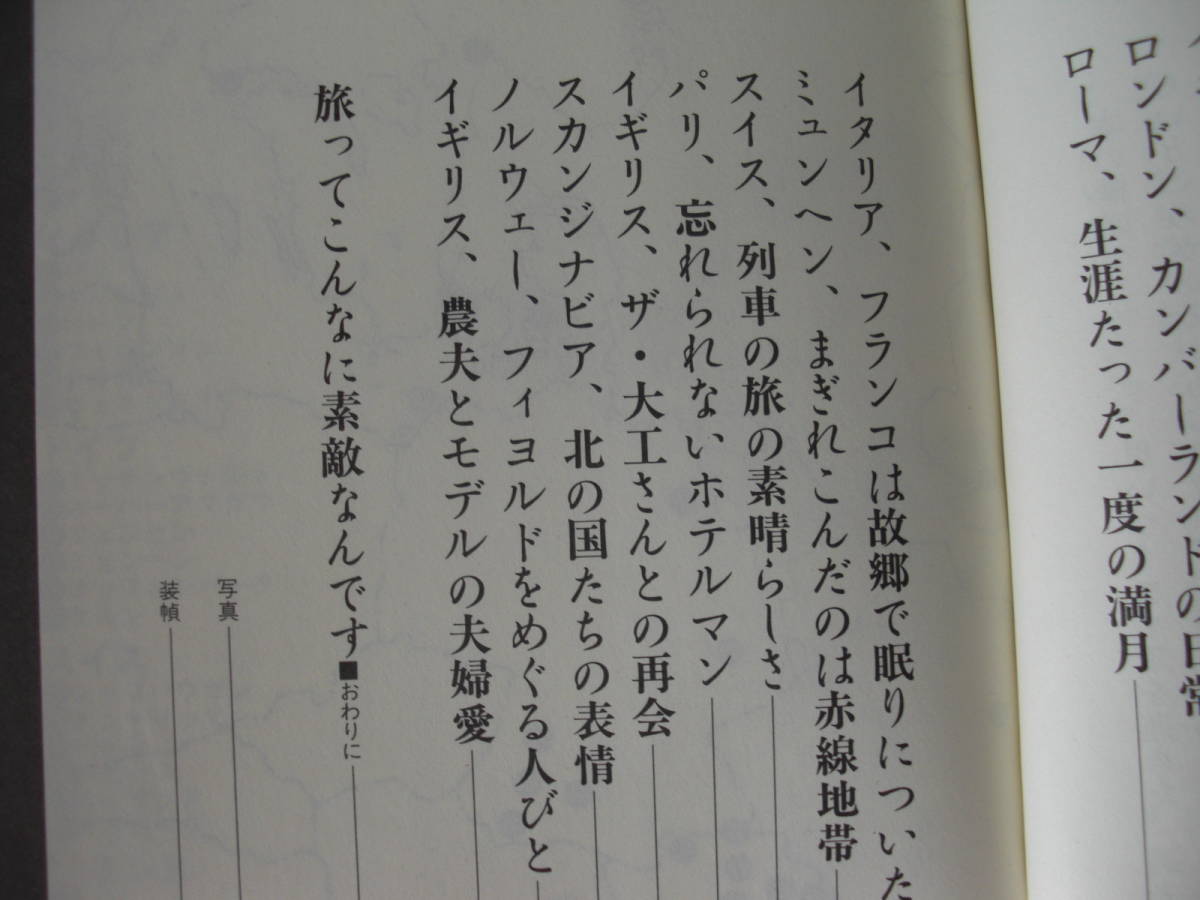 ロンドン、カンバーランドの日常
ローマ、生涯たった一度の満月
イタリア、フランコは故郷で眠りについた
ミュンヘン、まぎれこんだのは赤線地帯
スイス、列車の旅の素晴らしさ
パリ、忘れられないホテルマン
イギリス、ザ・大工さんとの再会
スカンジナビア、北の国たちの表情
ノルウェー、フィヨルドをめぐる人びと
イギリス、農夫とモデルの夫婦愛
旅ってこんなに素敵なんです■おわりに
写真
装幀